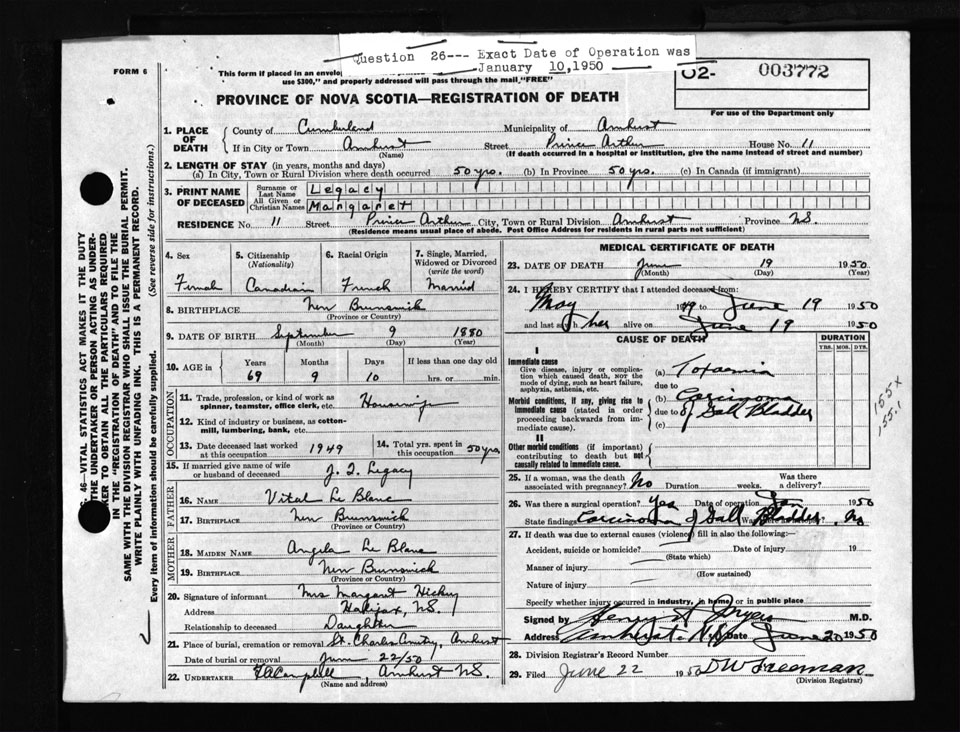 Question 26--- Exact Date of Operation was
January 10,1950
FORM 6
This form if placed in an envelo
use $300," and properly addressed will pass through the mail, "FREE"
02- 003772
For use of the Department only
PROVINCE OF NOVA SCOTIA—REGISTRATION OF DEATH
1. PLACE OF DEATH
County of Cumberland Municipality of Amherst
If in City or Town Amherst Street Prince Arthur House No. 11
(Name) (If death occurred in a hospital or institution, give the name instead of street and number)
2. LENGTH OF STAY (in years, months and days)
(a) In City, Town or Rural Division where death occurred 50 yrs. (b) In Province 50 yrs. (c) In Canada (if immigrant)
3. PRINT NAME OF DECEASED
Surname or Last Name Legacy
All Given or Christian Names Margaret
RESIDENCE No. 11 Street Prince Arthur City, Town or Rural Division Amherst Province N.S.
(Residence means usual place of abode. Post Office Address for residents in rural parts not sufficient)
4. Sex
Female
5. Citizenship (Nationality)
Canadian
6. Racial Origin
French
7. Single, Married, Widowed or Divorced (write the word)
Married
8. BIRTHPLACE New Brunswick
(Province or Country)
9. DATE OF BIRTH September 9 1880
(Month) (Day) (Year)
10. AGE in Years Months Days If less than one day old
69 9 10 hrs. or min.
OCCUPATION
11. Trade, profession, or kind of work as spinner, teamster, office clerk, etc. Housewife
12. Kind of industry or business, as cotton-mill, lumbering, bank, etc.
13. Date deceased last worked at this occupation 1949
14. Total yrs. spent in this occupation 50 yrs
15. If married give name of wife or husband of deceased J. T. Legacy
FATHER
16. NAME Vital Le Blanc
17. BIRTHPLACE New Brunswick
(Province or Country)
MOTHER
18. MAIDEN NAME Angela Le Blanc
19. BIRTHPLACE New Brunswick
(Province or Country)
20. Signature of informant Mrs Margaret Hickey
Address Halifax, N.S.
Relationship to deceased Daughter
21. Place of burial, cremation or removal St. Charles Cemetry, Amherst
Date of burial or removal June 22/50
22. UNDERTAKER Campbell, Amherst N.S.
(Name and address)
MEDICAL CERTIFICATE OF DEATH
23. DATE OF DEATH June 19 1950
(Month) (Day) (Year)
24. I HEREBY CERTIFY that I attended deceased from:
May 1949 to June 19 1950
and last saw her alive on June 19 1950
CAUSE OF DEATH
DURATION
YRS. MOS. DYS.
I
Immediate cause
Give disease, injury or complication which caused death, NOT the mode of dying, such as heart failure, asphyxia, asthenia, etc.
(a) Toxaemia
due to
Morbid conditions, if any, giving rise to immediate cause (stated in order proceeding backwards from immediate cause).
(b) Carcinoma
due to of Gall Bladder
(c)
II
Other morbid conditions (if important) contributing to death but not causally related to immediate cause.
155x
155.1
25. If a woman, was the death associated with pregnancy? No Duration weeks. Was there a delivery?
26. Was there a surgical operation? Yes Date of operation Jan 1950
State findings Carcinoma of Gall Bladder. Was No
27. If death was due to external causes (violence) fill in also the following:
Accident, suicide or homicide? Date of injury 19
(State which)
Manner of injury
(How sustained)
Nature of injury
Specify whether injury occurred in industry, in home, or in public place
Signed by Henry M.D.
Address Amherst. N.S. Date June 20 1950
28. Division Registrar's Record Number
29. Filed June 22 1950 D W Freeman
(Division Registrar)
C. 46—VITAL STATISTICS ACT MAKES IT THE DUTY
THE UNDERTAKER OR PERSON ACTING AS UNDER-
KER TO OBTAIN ALL THE PARTICULARS REQUIRED
IN THE "REGISTRATION OF DEATH" AND TO FILE THE
SAME WITH THE DIVISION REGISTRAR WHO SHALL ISSUE THE BURIAL PERMIT.
WRITE PLAINLY WITH UNFADING INK. THIS IS A PERMANENT RECORD.
Every item of information should be carefully supplied. (See reverse side for instructions.)